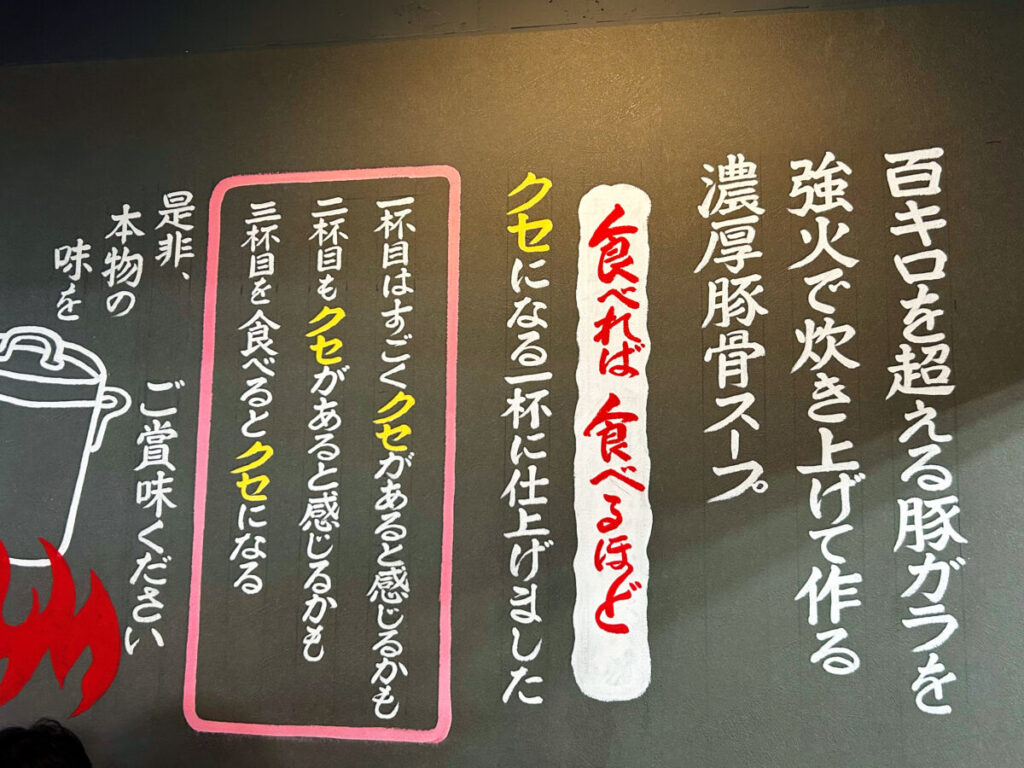 百キロを超える豚ガラを
強火で炊き上げて作る
濃厚豚骨スープ。
食べれば食べるほど
クセになる一杯に仕上げました
一杯目はすごくクセがあると感じるかも
二杯目もクセがあると感じるかも
三杯目を食べるとクセになる
是非、
本物の
味を
ご賞味ください